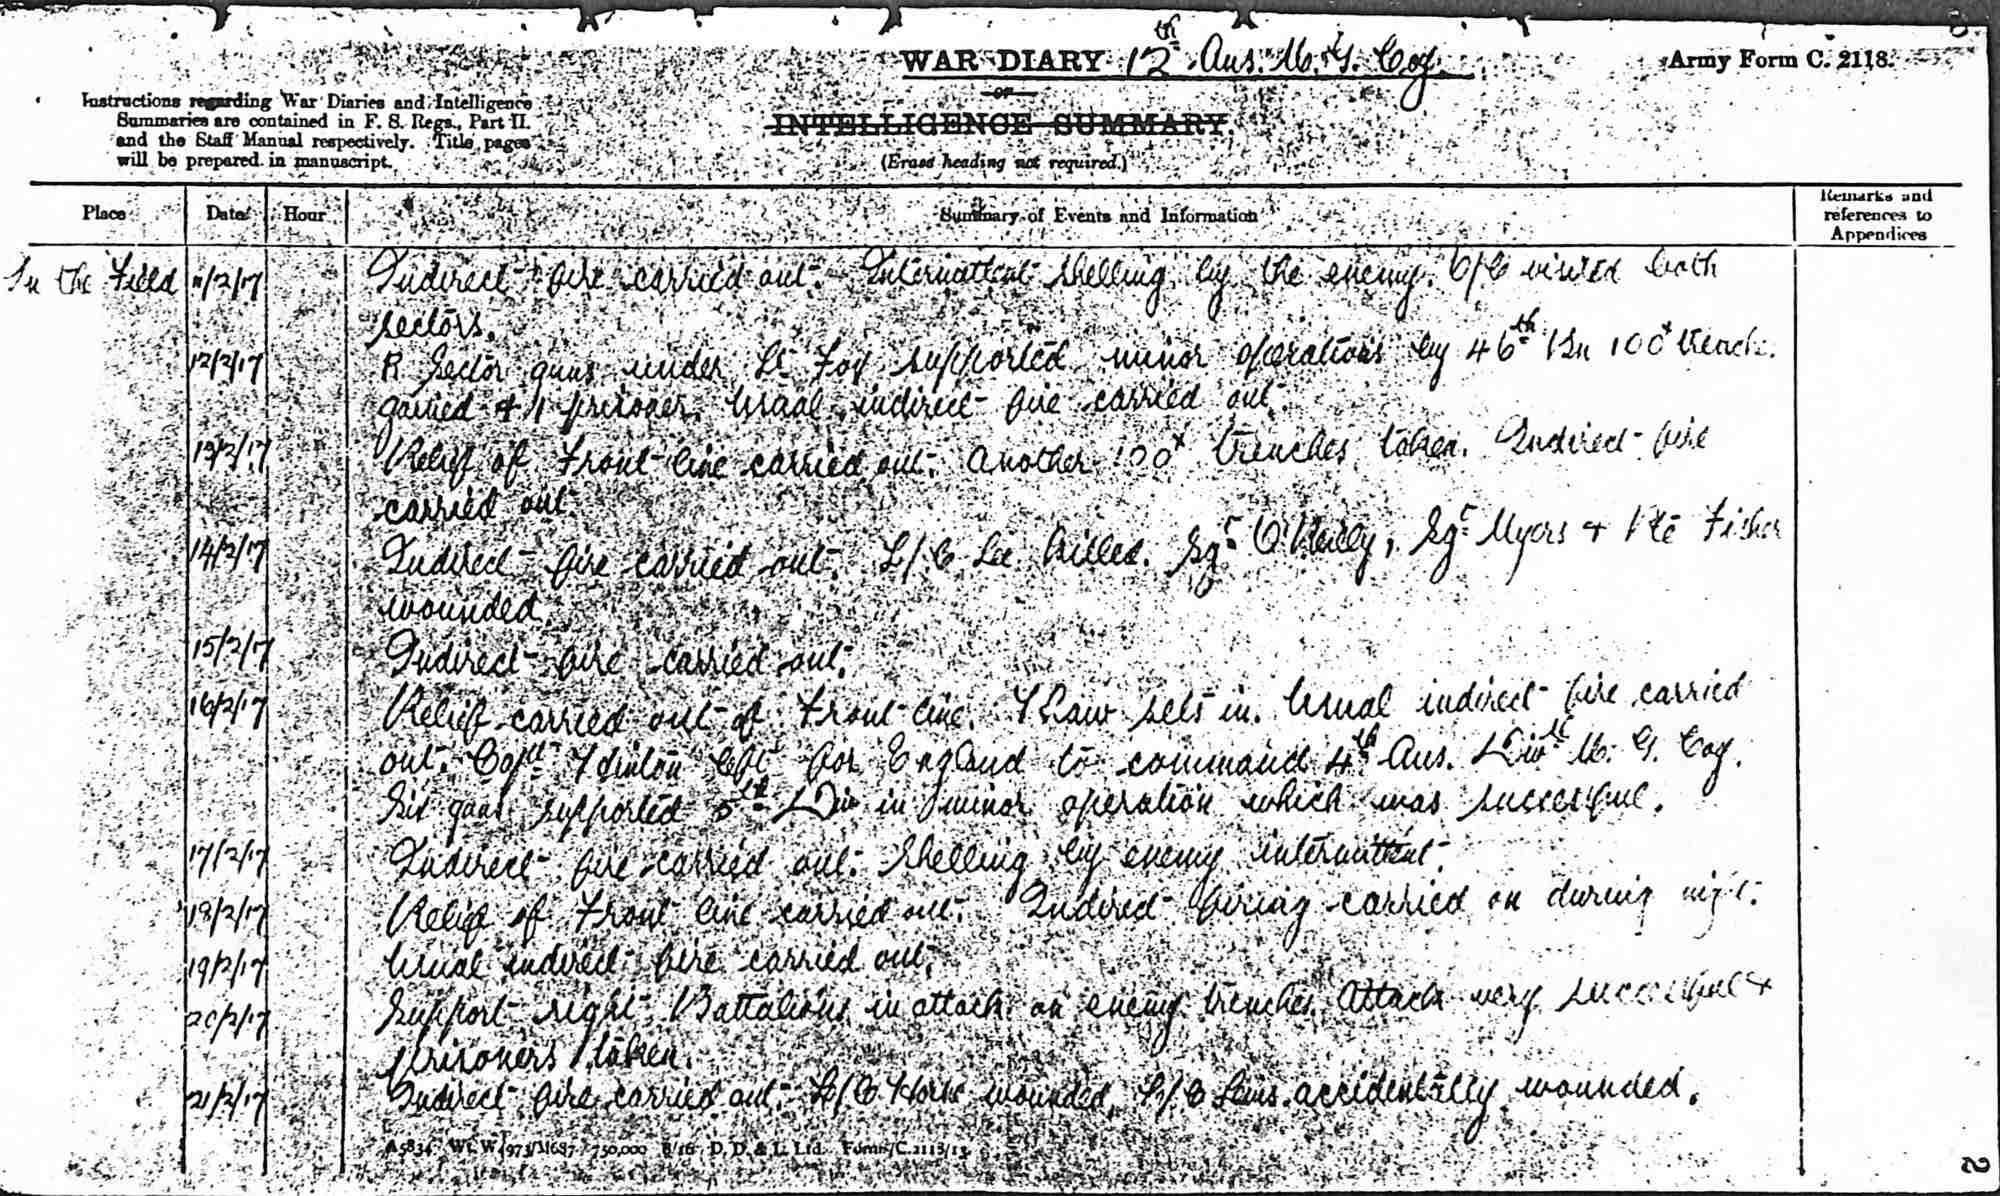 WAR DIARY 12th Aus. M. G. Coy.
Army Form C. 2118.
OR
INTELLIGENCE SUMMARY.
(Erase heading not required.)
Instructions regarding War Diaries and Intelligence
Summaries are contained in F. S. Regs., Part II.
and the Staff Manual respectively. Title pages
will be prepared in manuscript.
Place Date Hour Summary of Events and Information Remarks and
references to
Appendices
In the Field 11/2/17 Indirect fire carried out. Intermittent shelling by the enemy. O/C visited both
sectors.
12/2/17 R Sector guns under Lt supported minor operations by 46th Bn 100x trench
gained & 11 prisoners. Usual indirect fire carried out.
13/2/17 Relief of Front line carried out. Another 100x trenches taken. Indirect fire
carried out
14/2/17 Indirect fire carried out. L/C Lee killed. Sgt O'Reilly, Sgt Myers & Pte Fisher
wounded.
15/2/17 Indirect fire carried out.
16/2/17 Relief carried out of Front line. Thaw sets in. Usual indirect fire carried
out. Capt Hinton left for England to command 4th Aus. Div M. G. Coy.
Six guns supported 5th Div in minor operation which was successful.
17/2/17 Indirect fire carried out. Shelling by enemy intermittent.
18/2/17 Relief of Front line carried out. Indirect firing carried on during night.
19/2/17 Usual indirect fire carried out.
20/2/17 Support right Battalions in attack on enemy trenches. Attack very successful &
prisoners taken.
21/2/17 Indirect fire carried out. L/C wounded, L/C accidentally wounded.
750,000 8/16 D. D. & L. Ltd. Forms/C.2118/13
2